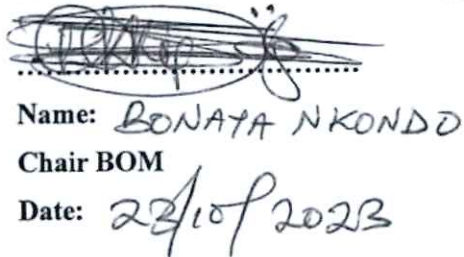 Name: BONAYA NKONDO
Chair BOM
Date: 23/10/2023